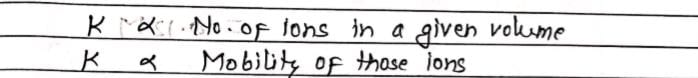 K α No. of ions in a given volume
K α Mobility of those ions